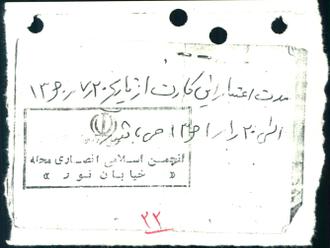 مدت اعتبار این کارت از تاریخ ۲۰ر۷ر۱۳۶۰
الی ۲۰ر۱۰ر۱۳۶۰ می باشد
انجمن اسلامی انصاری محله
« خیابان نور »
۲۲